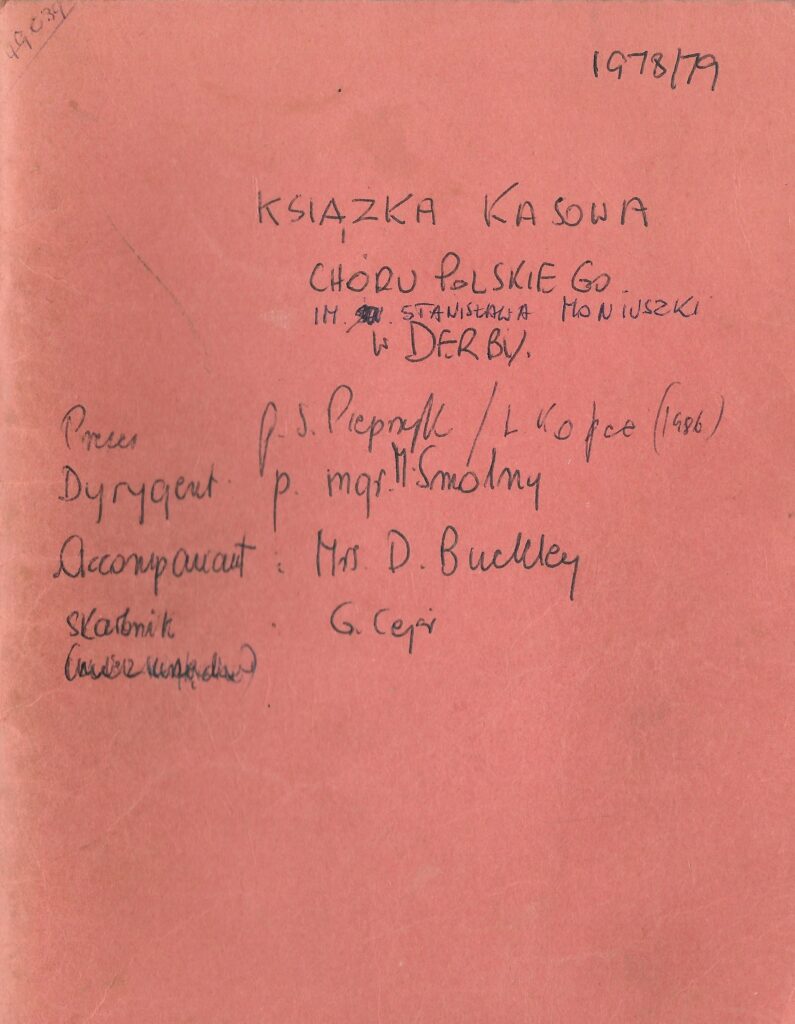 49034
1978/79
KSIĄZKA KASOWA
CHÓRU POLSKIEGO.
IM. STANISŁAWA MONIUSZKI
W DERBY.
Prezes p. S. Pieprzyk / L Kopce (1986)
Dyrygent p. mgr. M. Smolny
Accompaniant : Mrs D. Buckley
Skarbnik . G. Cejer